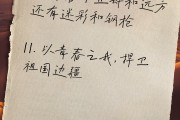 和远方
还有迷彩和钢枪
11. 以青春之我, 捍卫
祖国边疆